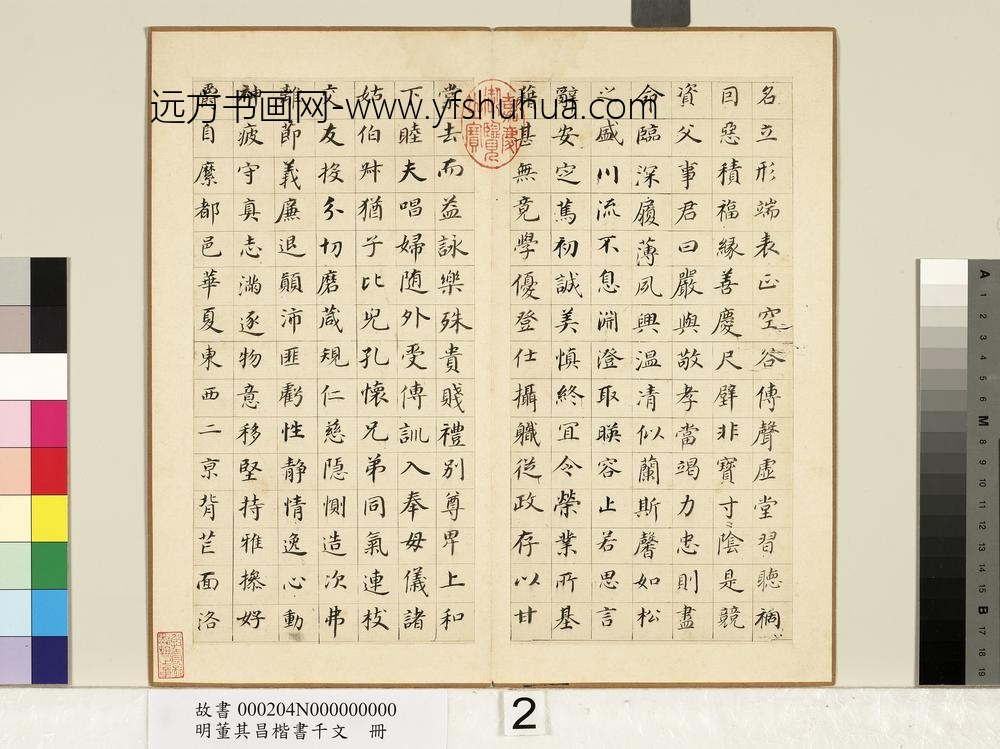 名立形端表正空谷傳聲虛堂習聽禍
因惡積福緣善慶尺璧非寶寸陰是競
資父事君曰嚴與敬孝當竭力忠則盡
命臨深履薄夙興温清似蘭斯馨如松
之盛川流不息淵澄取暎容止若思言
辭安定篤初誠美慎終宜令榮業所基
籍甚無竟學優登仕攝職從政存以甘
棠去而益詠樂殊貴賤禮別尊卑上和
下睦夫唱婦随外受傅訓入奉母儀諸
姑伯叔猶子比兒孔懷兄弟同氣連枝
交友投分切磨葴規仁慈隱惻造次弗
離節義廉退顛沛匪虧性静情逸心動
神疲守真志滿逐物意移堅持雅操好
爵自縻都邑華夏東西二京背芒面洛
嘉慶御覽之寶
远方书画网-www.yfshuhua.com
故書 000204N000000000
明董其昌楷書千文 冊
2
A 1 2 3 4 5 6 M 8 9 10 11 12 13 14 15 B 17 18 19